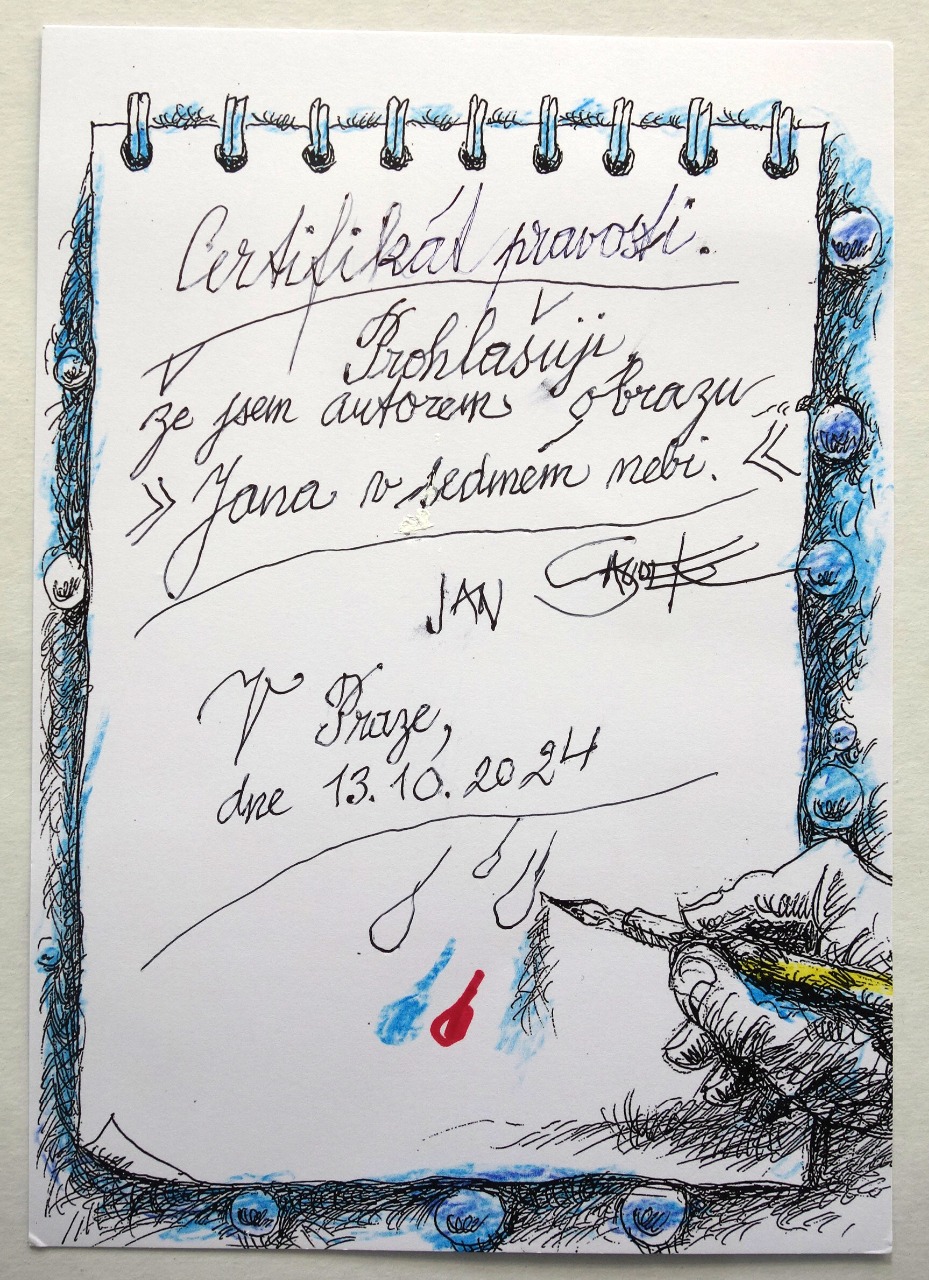 Certifikát pravosti.
Prohlašuji,
že jsem autorem obrazu
» Jana v sedmém nebi. «
JAN
V Praze,
dne 13.10.2024